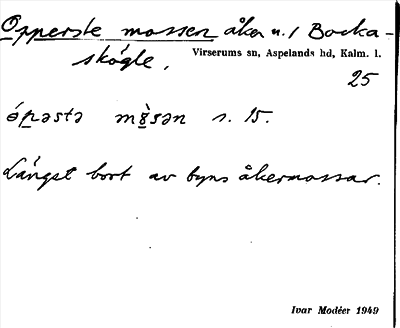 Opperste mossen åker u. / Bocka-
skógle.
Virserums sn, Aspelands hd, Kalm. l.
25
ópəstə mò̯sən s. 15.
Längst bort av byns åkermossar.
Ivar Modéer 1949